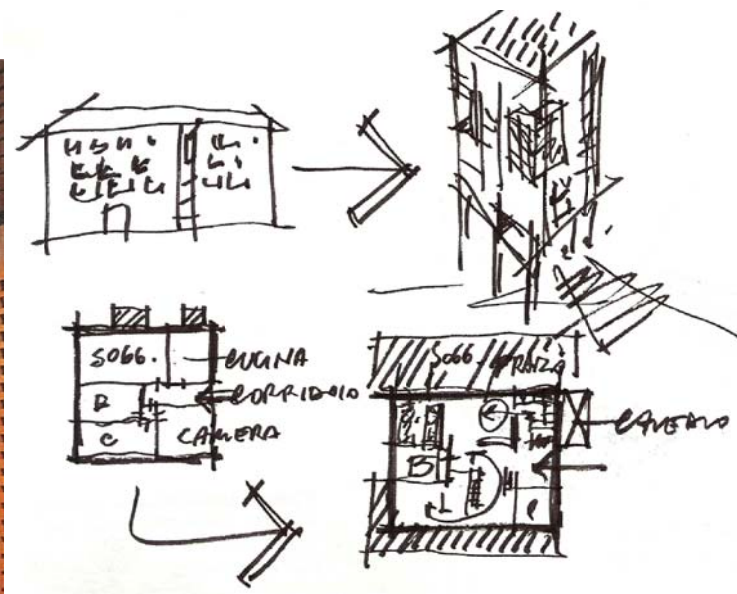 SOGG.
CUCINA
B
CORRIDOIO
C
CAMERA
SOGG. PRANZO
B
CAVEDIO